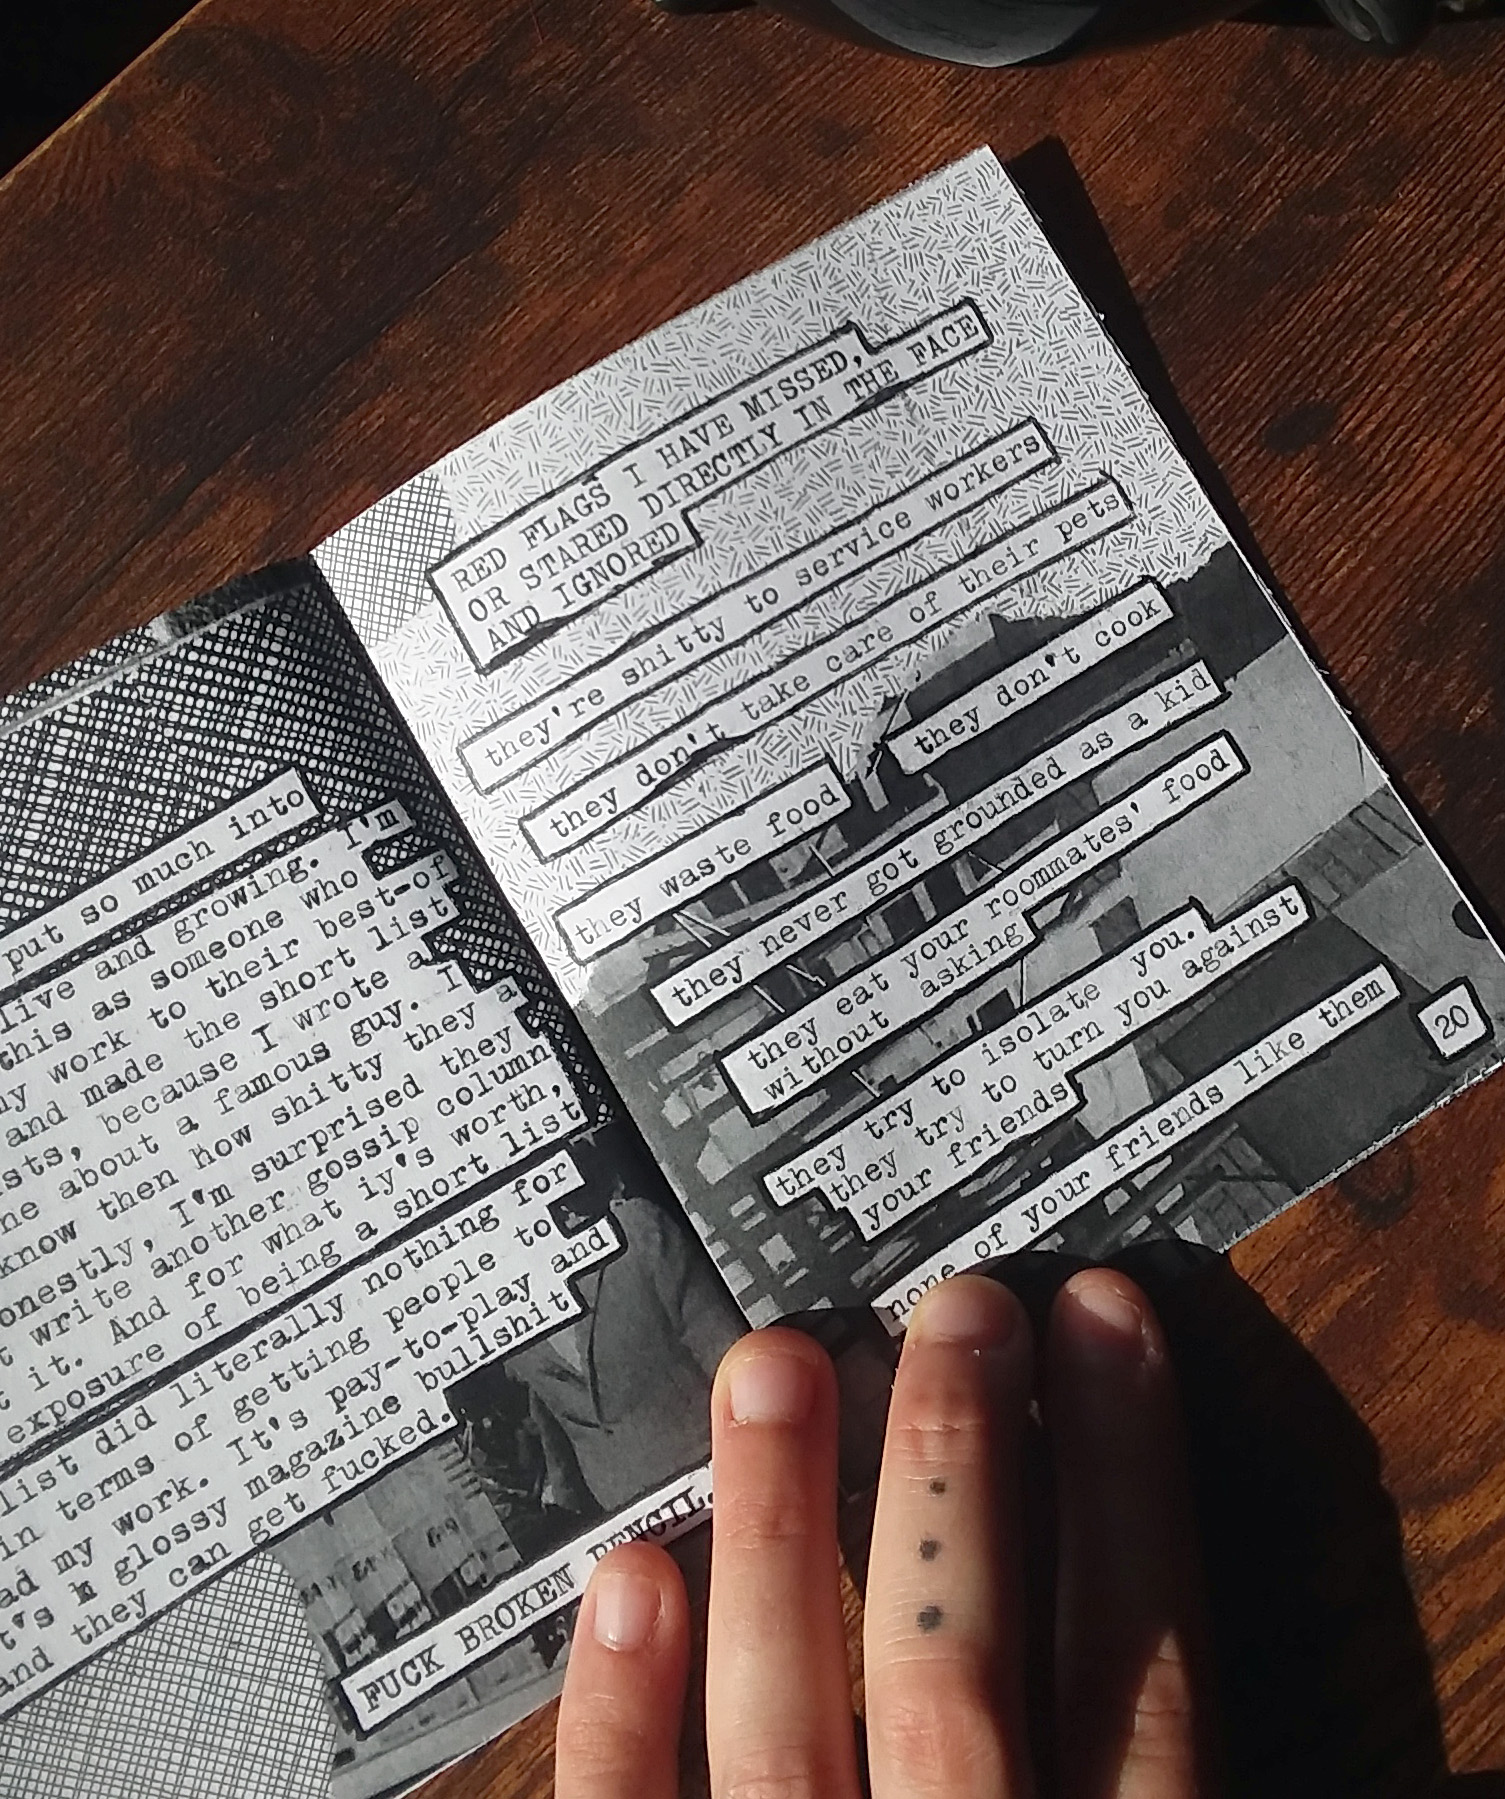 put so much into
live and growing. I'm
this as someone who
my work to their best-of
and made the short list
because I wrote a
about a famous guy. I
know then how shitty they a
onestly, I'm surprised they
write another gossip column
it. And for what iy's worth,
exposure of being a short list
list did literally nothing for
in terms of getting people to
my work. It's pay-to-play and
glossy magazine bullshit
and they can get fucked.
FUCK BROKEN PENCIL.
RED FLAGS I HAVE MISSED,
OR STARED DIRECTLY IN THE FACE
AND IGNORED
they're shitty to service workers
they don't take care of their pets
they don't cook
they waste food
they never got grounded as a kid
they eat your roommates' food
without asking
they try to isolate you.
they try to turn you against
your friends
none of your friends like them
20